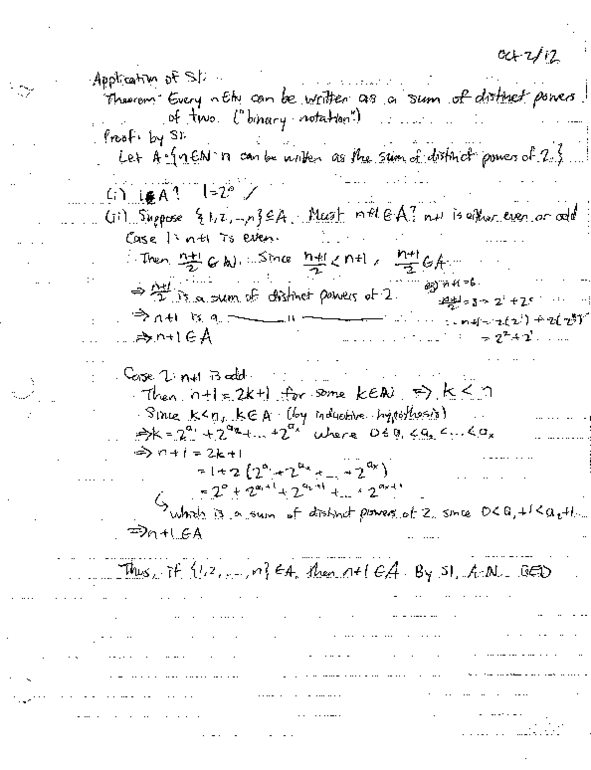 Oct 2/12
Application of SI:
Theorem: Every n∈N can be written as a sum of distinct powers
of two. ("binary notation")
Proof: by SI.
Let A={n∈N: n can be written as the sum of distinct powers of 2.}
(i) 1∈A? 1=2⁰ ✓
(ii) Suppose {1,2,...,n}⊆A. Must n+1∈A? n+1 is either even or odd
Case 1: n+1 is even.
Then (n+1)/2 ∈ N. Since (n+1)/2 < n+1, (n+1)/2 ∈ A.
⇒ (n+1)/2 is a sum of distinct powers of 2.
eg) n+1=6
(n+1)/2 = 3 = 2¹+2⁰
⇒ n+1 is a ——— " ———
∴ n+1 = 2(2¹) + 2(2⁰)
= 2²+2¹
⇒ n+1∈A
Case 2: n+1 is odd.
Then n+1 = 2k+1 for some k∈N ⇒ k < n
Since k<n, k∈A (by inductive hypothesis)
⇒ k = 2^a₁ + 2^a₂ + ... + 2^aₓ where 0≤a₁<a₂<...<aₓ
⇒ n+1 = 2k+1
= 1+2(2^a₁ + 2^a₂ + ... + 2^aₓ)
= 2⁰ + 2^(a₁+1) + 2^(a₂+1) + ... + 2^(aₓ+1)
which is a sum of distinct powers of 2 since 0<a₁+1<a₂+1...
⇒ n+1∈A
Thus, if {1,2,...,n}∈A, then n+1∈A. By SI, A=N. QED